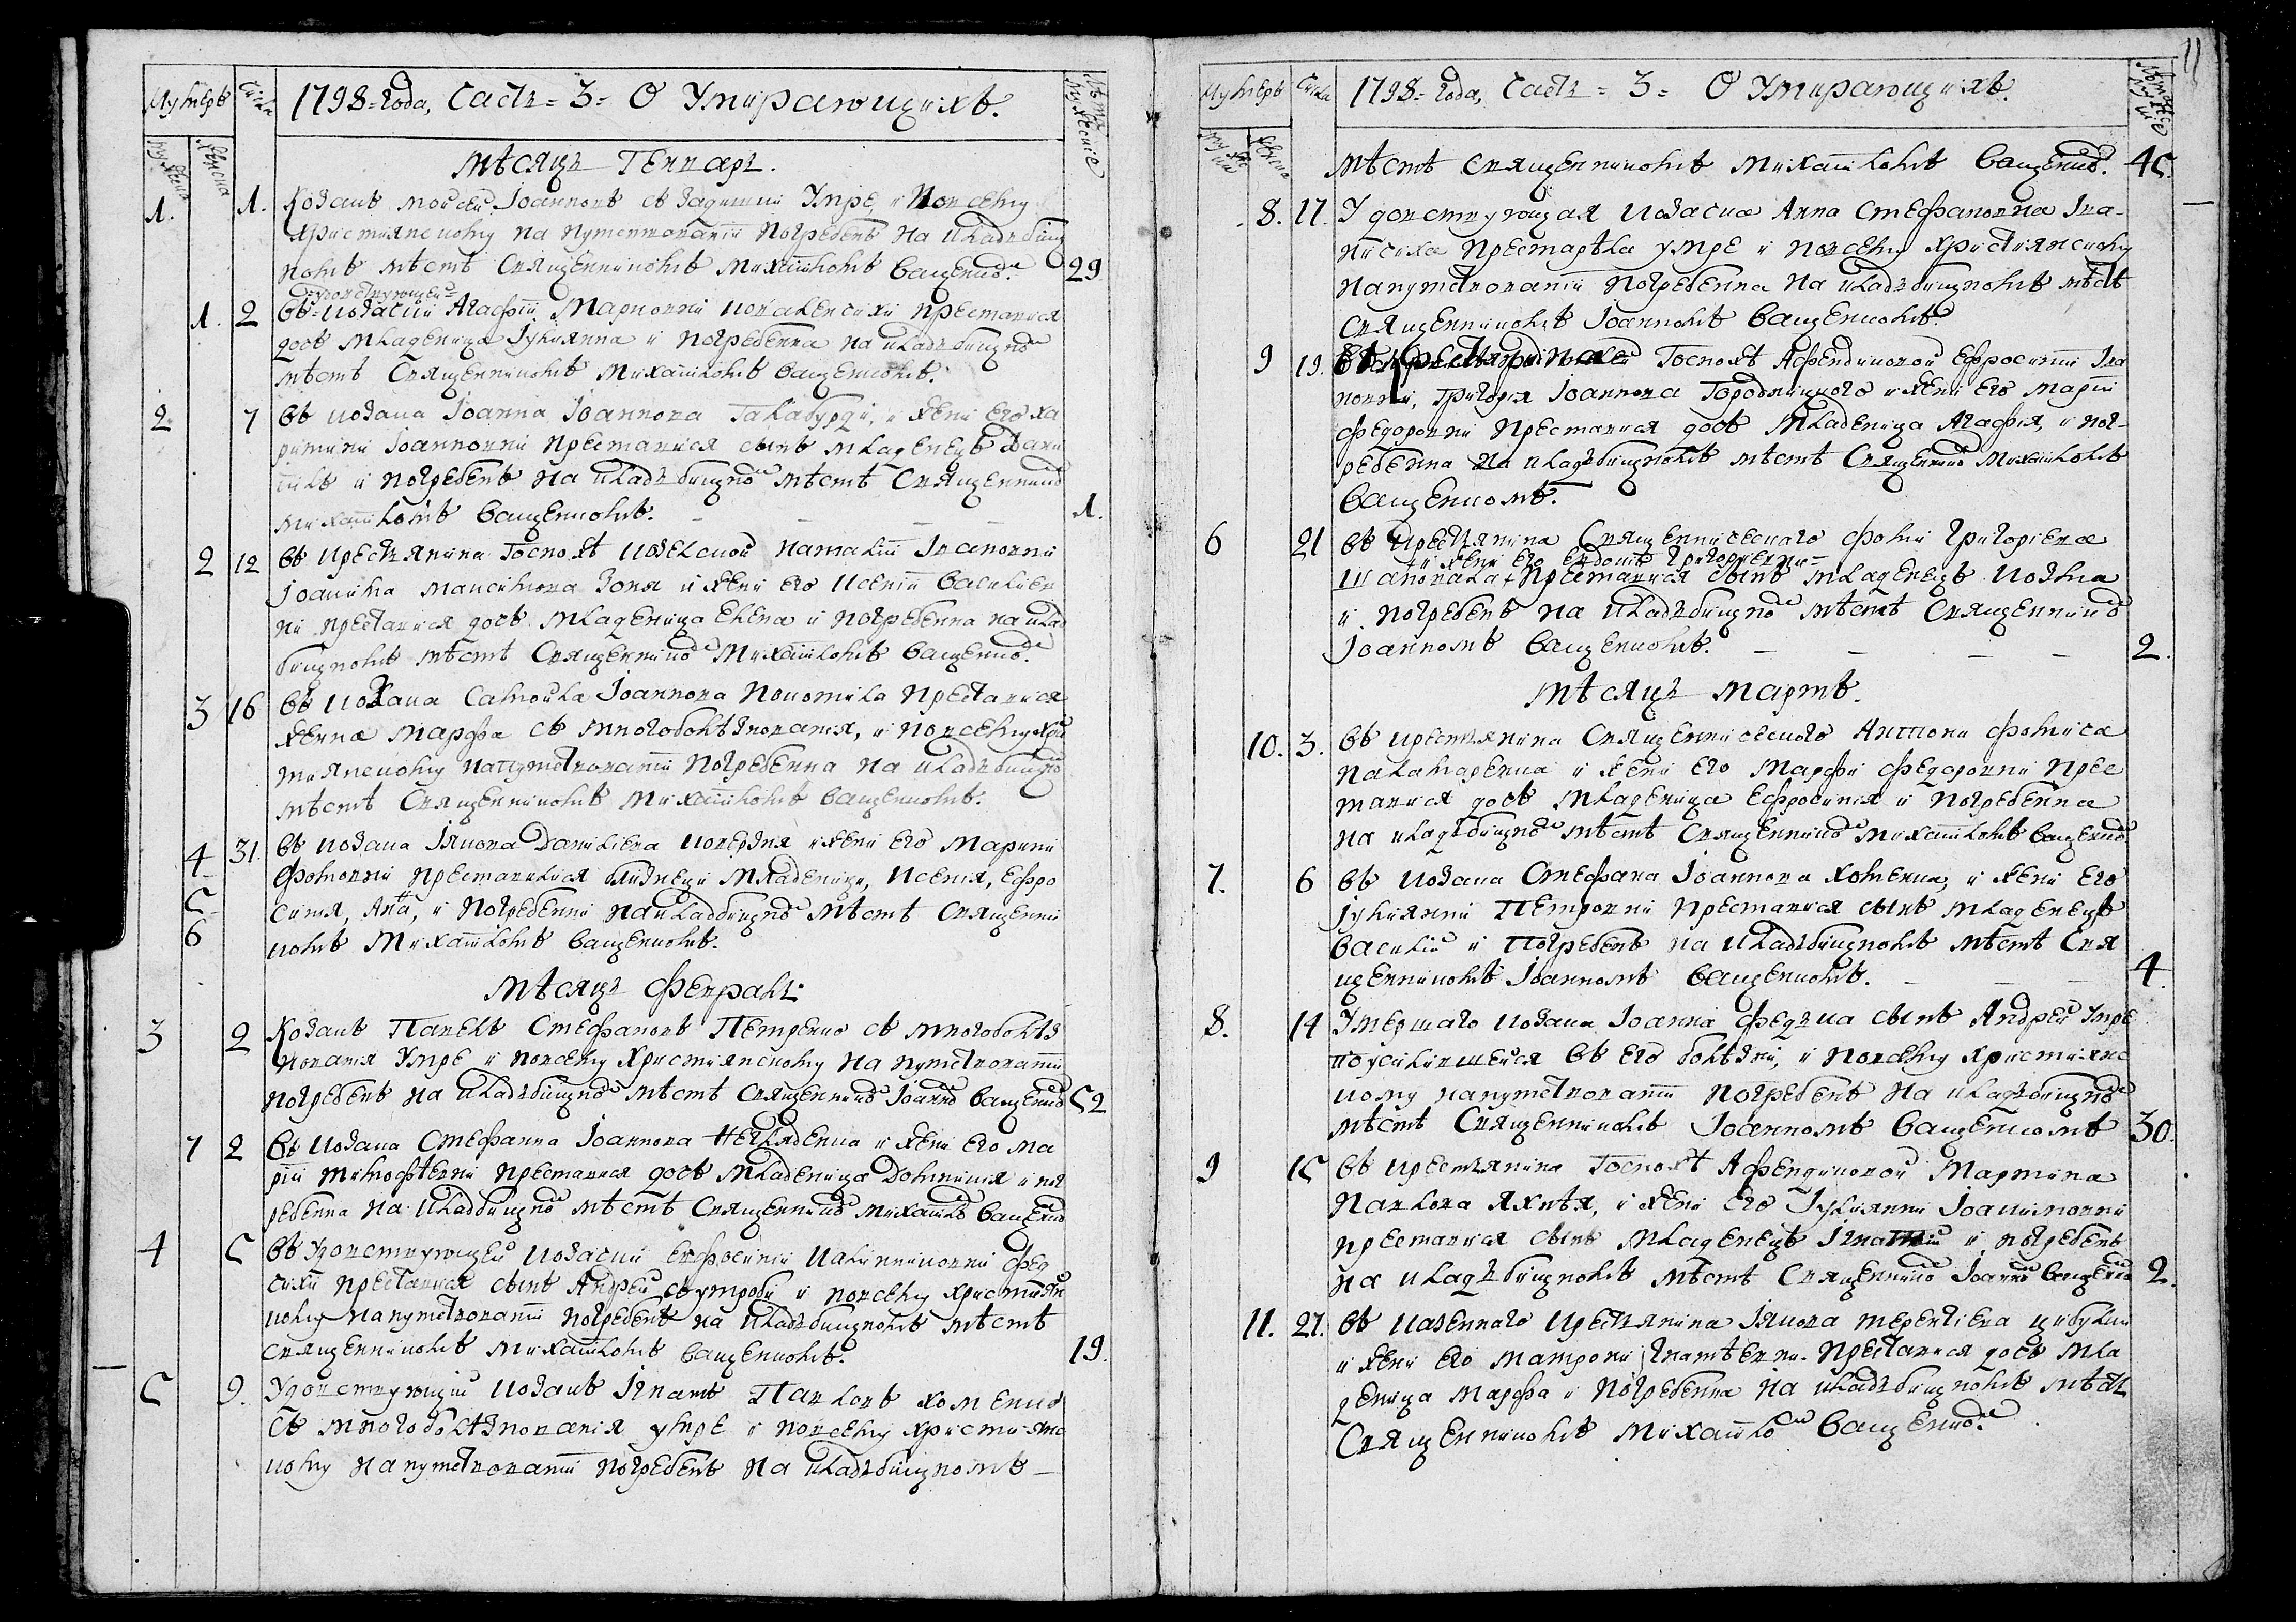 11
Нумеръ
Числа
1798 = Года, Часть = 3 = О Умирающихъ.
Лѣта
мужескіе
мужеска
женска
Мѣсяцъ Генварь.
1. 1. Козакъ Мойсей Іоанновъ съ умре, и по всему
християнскому на путствованіи погребенъ на кладбищ
номъ мѣстѣ Священникомъ Михаиломъ Ващенко. 29
удовствующей
1. 2 Въ козачки Агафіи Марковни Ковалевскихи преставися
дочъ младеница Іулиянна и погребенна на кладбищно
мѣстѣ Священникомъ Михаиломъ Ващенкомъ.
2 7 Въ козака Іоанна Іоаннова Галабурди, и жени его Ха
ритини Іоанновни преставися сынъ младенецъ Дани
іилъ и погребенъ на кладбищно мѣстѣ Священнико
Михаиломъ Ващенкомъ. 1.
2 12 Въ крестянина Госпожѣ Наталіи Ивановни
Іоакима Максимова Зоня и жени его Ксеніи Василиев
ни преставися дочъ младеница Елена и погребенна на клад
бищномъ мѣстѣ Священнико Михаиломъ Ващенко.
3 16 Въ козака Самойла Іоаннова Покотила преставися
женна Марфа съ многоболѣзнованія, и по всему хри
тиянскому напутствованіи погребенна на кладбищно
мѣстѣ Священникомъ Михаиломъ Ващенкомъ.
4 31. Въ козака Іякова Данилева и жени его Марини
5 Фоминни преставилися близнеци младеници, Ксенія, Ефро
6 синія, Анна, и погребенни на кладбищно мѣстѣ Священни
комъ Михаиломъ Ващенкомъ.
Мѣсяцъ Февраль.
3 2 Козакъ Павелъ Стефановъ Петренко съ многоболѣз
нованія умре и по всему християнскому на путствованіи
погребенъ на кладбищно мѣстѣ Священнико Іоанно Ващенко 52
7 2 Въ козака Стефанна Іоаннова и жени его Ма
ріи Тимофѣевни преставися дочъ младеница Домникія и пог
ребенна на кладбищно мѣстѣ Священнико Михаило Ващенко
4 5 Въ удовствующей козачки Ефросиніи Калинниковни Фед
чихи преставися сынъ Андрей съ утроби и по всему християн
кому напутствованіи погребенъ на кладбищномъ мѣстѣ
Священникомъ Михаиломъ Ващенкомъ. 19.
5 9. Удовствующій козакъ Игнатъ Павловъ Хоменко
съ многоболѣзнованія умре и по всему християнс
кому на путствованіи погребенъ на кладбищномъ
Нумеръ
Числа
1798 = Года, Часть = 3 = О Умирающихъ.
мужеска
женска
мѣстѣ Священникомъ Михаиломъ Ващенко. 45.
8. 17. Удовствующая козачка Анна Стефановна
престарѣла умре и по всему християнскому
напутствованіи погребенна на кладбищномъ мѣстѣ
Священникомъ Іоанномъ Ващенкомъ.
9 19. Госпожѣ Афендиковой Ефросиніи Ива
новни, Григория Іоаннова Городницкого и жени его Маріи
Федоровни преставися дочъ младеница Агафія, и пог
ребенна на кладбищномъ мѣстѣ Священнико Михаиломъ
Ващенкомъ.
6 21 Въ крестянина Священническаго Фоми Григориева
и жени его Григориевни
Шаповала + преставися сынъ младенецъ Козма
и погребенъ на кладбищно мѣстѣ Священнико
Іоанномъ Ващенкомъ. 2.
Мѣсяцъ Мартъ.
10. 3. Въ крестянина Священнического Антона Фомича
Паламаренка и жени его Марфи Федоровни прес
тавися дочъ младеница Ефросинія и погребенна
на кладбищно мѣстѣ Священнико Михаиломъ Ващенко
7. 6 Въ козака Стефана Іоаннова Хоменка, и жени его
Іулиянни Петровни преставися сынъ младенецъ
Василій и погребенъ на кладбищномъ мѣстѣ Свя
щенникомъ Іоанномъ Ващенкомъ. 4
8. 14 Умершаго козака Іоанна Федька сынъ Андрей умре
по усилившейся въ его болѣзни, и по всему християнс
кому напутствованіи погребенъ на кладбищно
мѣстѣ Священникомъ Іоанномъ Ващенкомъ 30.
9 15 Въ крестянина Госпожѣ Афендиковой Мартина
Павлова и жени его Іулиянни Іоакимовни
преставися сынъ младенецъ Игнатий и погребенъ
на кладбищномъ мѣстѣ Священнико Іоанно Ващенко 2.
11. 27. Въ казеннаго крестянина Іякова Терентиева Цибулки
и жени его Матрони Игнатѣевни преставися дочъ мла
деница Марфа и погребенна на кладбищномъ мѣстѣ
Священникомъ Михаило Ващенко.